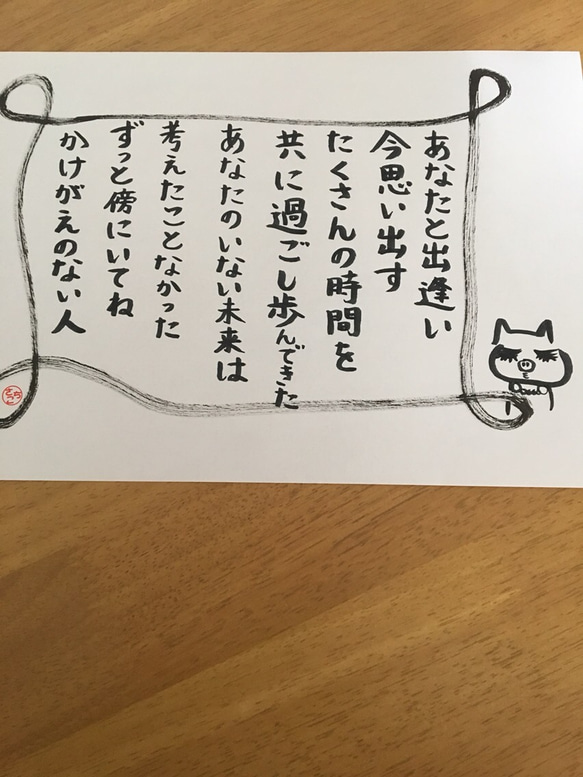 あなたと出逢い
今思い出す
たくさんの時間を
共に過ごし歩んできた
あなたのいない未来は
考えたことなかった
ずっと傍にいてね
かけがえのない人